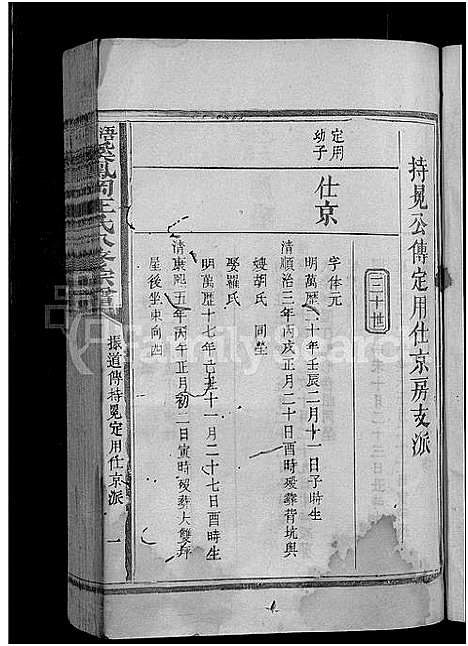 持晃公傳定用仕京一房支派
三十世
定用
幼子
仕京
字体元
明萬歷二十年壬辰二月十一日子時生
清順治三年丙戌正月二十日酉時歿葬背坑與
嫂胡氏 同塋
娶羅氏
明萬歷十七年 十一月二十七日酉時生
清康熙五年丙午正月初二日寅時歿葬大雙
屋後坐東向西
浯溪鳳岡王氏八修宗譜
振道傳持晃定用仕京派
一
FamilySearch